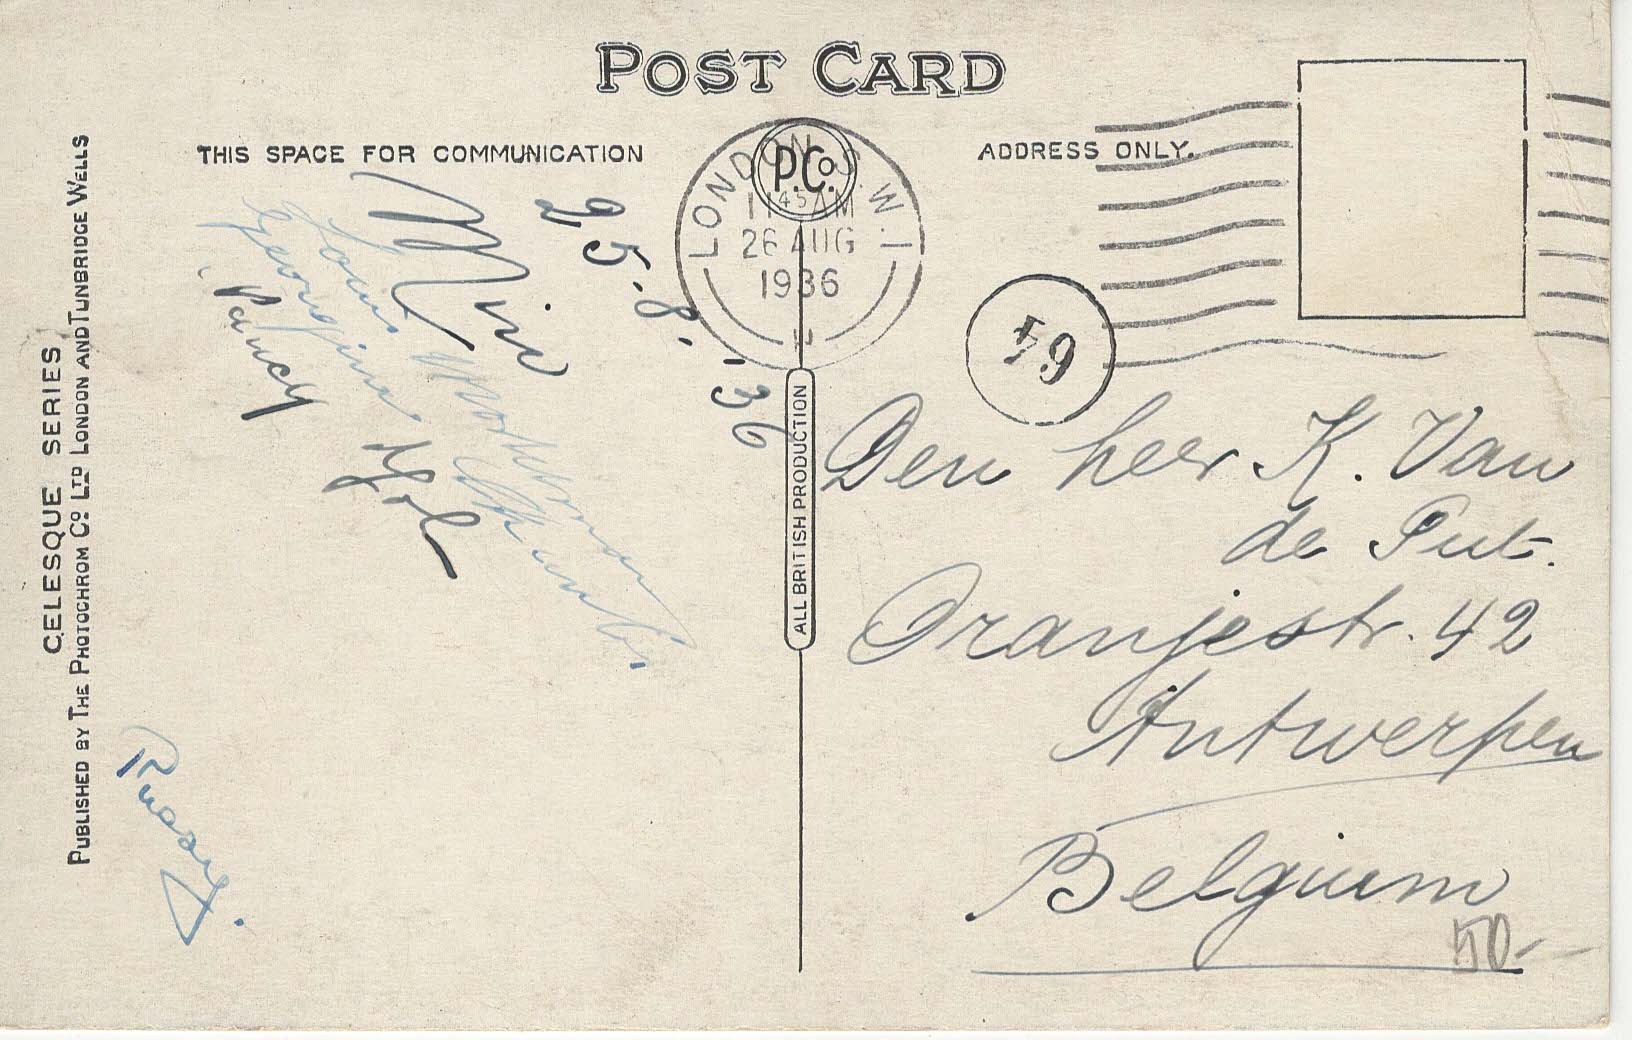 POST CARD
THIS SPACE FOR COMMUNICATION
ADDRESS ONLY.
P.Co.
LONDON S.W.1
11 45 AM
26 AUG
1936
64
25.8.'36
Georgine
Yol
Den heer K. Van
de Put.
Oranjestr. 42
Antwerpen
Belgium
50-
ALL BRITISH PRODUCTION
CELESQUE SERIES
PUBLISHED BY THE PHOTOCHROM CO. LTD LONDON AND TUNBRIDGE WELLS